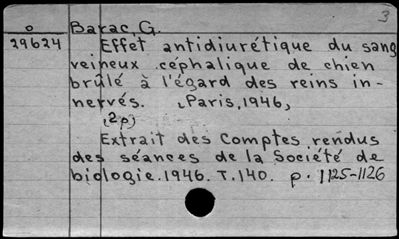 3
o Barac G.
29624 Effet antidiurétique du sang
veineux céphalique de chien
brûlé à l'égard des reins in-
nervés. Paris, 1946,
(2p)
Extrait des Comptes rendus
des séances de la Société de
biologie. 1946. T. 140. p. 1125-1126